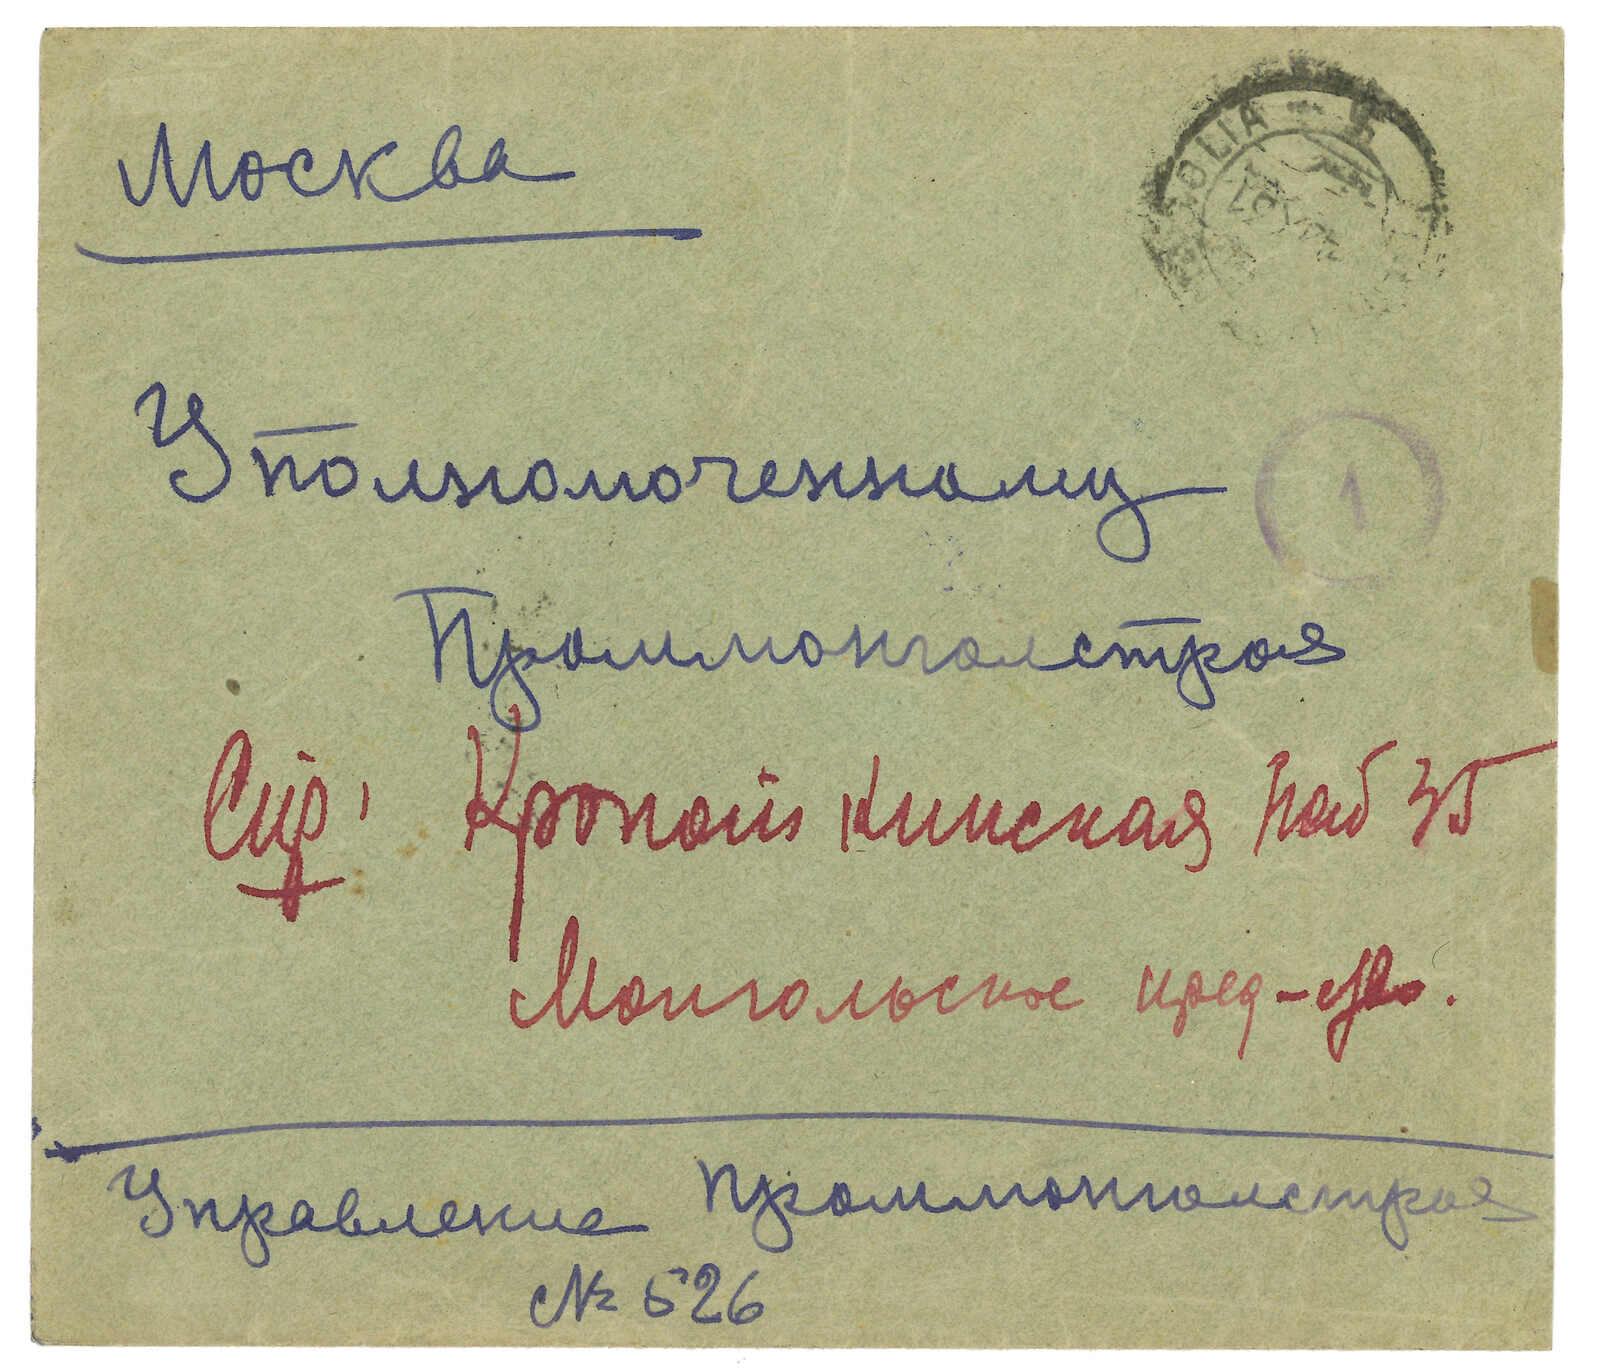 Москва
MONGOLIA
Уполномоченному
1
Проммонголстроя
Кропоткинская наб 35
Монгольское пред-во.
Управление Проммонголстроя
№ 526